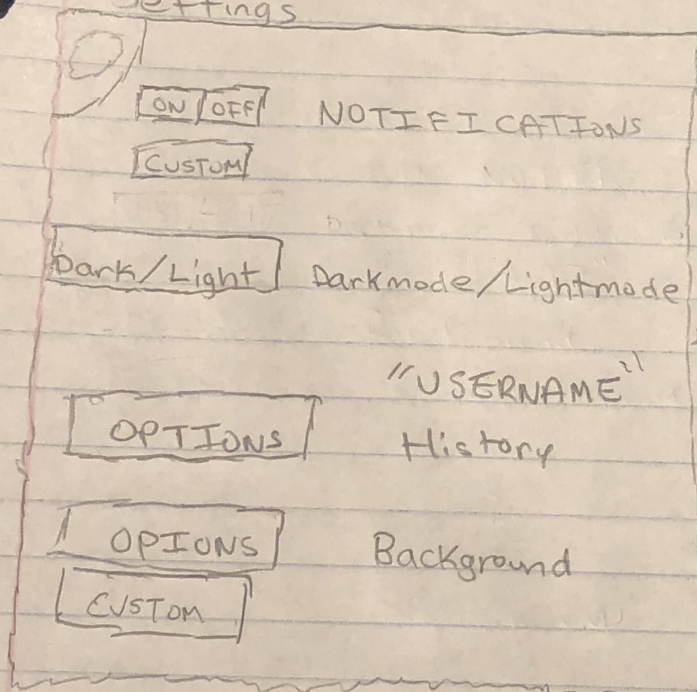 Settings
ON/OFF NOTIFICATIONS
CUSTOM
Dark/Light Darkmode/Lightmode
"USERNAME"
OPTIONS History
OPIONS Background
CUSTOM